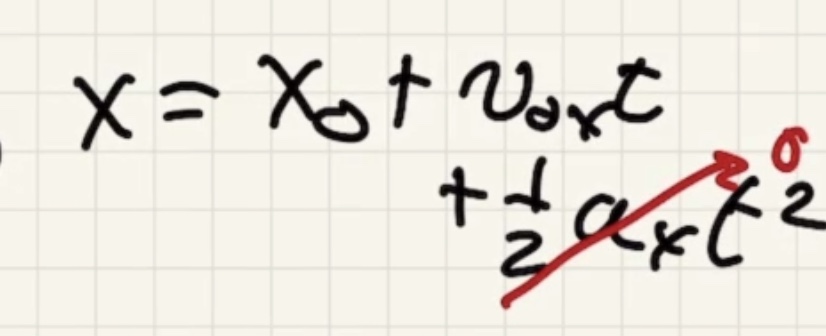 x = x₀ + v₀ₓt
+ ½ aₓt² 0